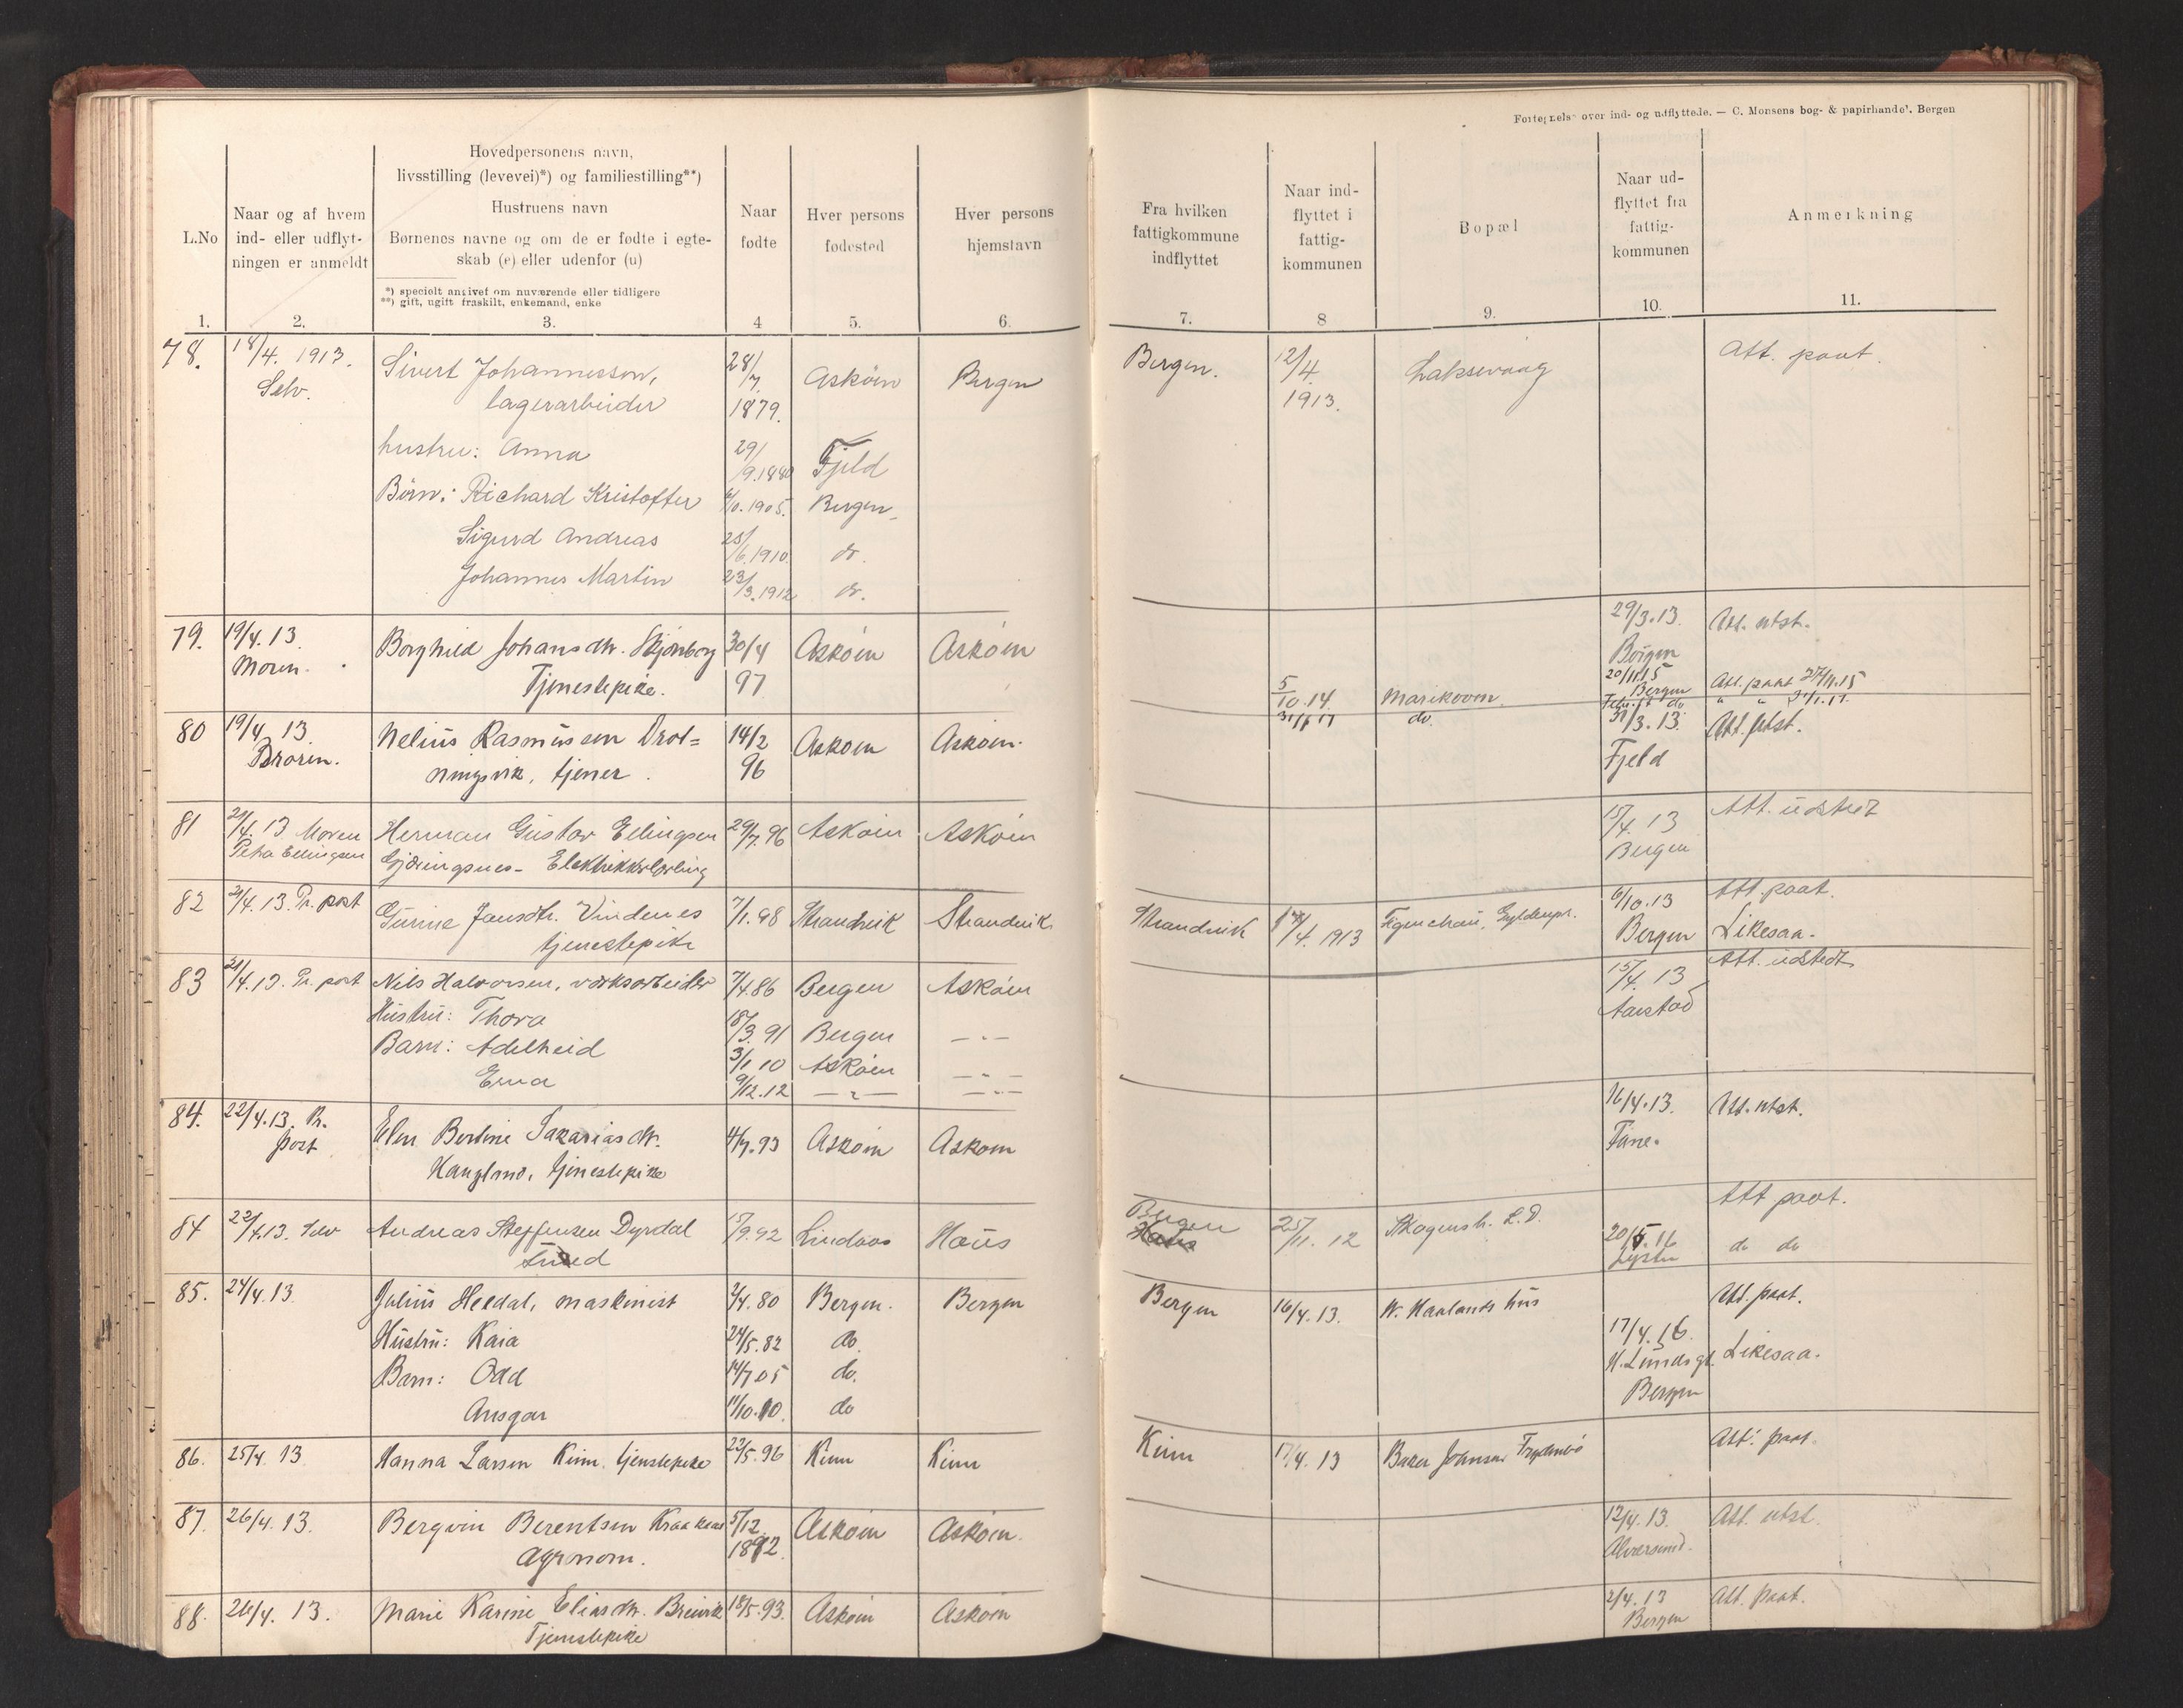 Fortegnelse over ind- og udflyttede. — C. Monsens bog- & papirhandel. Bergen
L.No
Naar og af hvem ind- eller udflyt-ningen er anmeldt
Hovedpersonens navn,
livsstilling (levevei)*) og familiestilling**)
Hustruens navn
Børnenes navne og om de er fødte i egte-
skab (e) eller udenfor (u)
*) specielt angivet om nuværende eller tidligere
**) gift, ugift fraskilt, enkemand, enke
Naar fødte
Hver persons fødested
Hver persons hjemstavn
Fra hvilken fattigkommune indflyttet
Naar ind-flyttet i fattig-kommunen
Bopæl
Naar ud-flyttet fra fattig-kommunen
Anmerkning
1. 2. 3. 4 5. 6. 7. 8 9. 10. 11.
78. 18/4. 1913. Sivert Johannesson, 28/7. 1879. Askøen Bergen Bergen. 12/4. 1913. Laksevaag Att. paat.
Selv. lagerarbeider
hustru: Anna 29/9.1880 Fjeld
Børn: Richard Kristoffer /10.1905. Bergen
Sigurd Andreas 25/6.1910. do.
Johannes Martin 23/3.1912 do.
79. 19/4.13. Borghild Johansdtr. 30/4 97 Askøen Askøen 29/3.13. Att. utst.
Moren. Tjenestepike. Bergen
5/10.14. Marikoven 20/11.15 Bergen Att. paat 27/11.15
do.
80 19/4 13 Nelius Rasmussen Drot= 14/2 96 Askøen Askøen. 31/3.13. Att. utst.
Broren. ningsvik, tjener. Fjeld
81 21/4.13 Moren Herman Gustav Ellingsen 29/7.96 Askøen Askøen 15/4.13 Att. udstedt
Petra Ellingsen Gjeringsnes - Bergen
82 21/4.13. Pr. post Gurine Jansdtr. Vindenes 7/1.98 Strandvik Strandvik Strandvik /4.1913 6/10.13 Att. paat.
tjenestepike Bergen Likesaa.
83 21/4.13. Pr. post Nils Halvorsen, verksarbeider 7/4.86 Bergen Askøen 15/4.13 Att. udstedt
Hustru: Thora 18/3.91 Bergen — " — Aarstad
Barn: Adelheid 3/1 10 Askøen — " —
Erna 9/12.12 — " — — " —
84. 22/4.13. Pr. Elen Bertine Sakariasdtr. 4/7.93 Askøen Askøen 16/4.13. Att. utst.
post tjenestepike Fane.
84 22/4.13. Selv Andreas Steffensen Dyrdal 15/9.92 Lindaas Haus Bergen 25/11.12 Skogenstr. L.D. Att paat.
Smed Haus 20/5.16 do do
85. 24/4.13. Julius Heldal, maskinist 2/4.80 Bergen. Bergen Bergen 16/4.13. W. Haalands hus Att. paat.
Hustru: Kaia 24/5.82 do. 17/4.16.
Barn: Odd 14/7 05 do. Likesaa.
Ansgar 11/10.10. do Bergen
86. 25/4 13 Hanna Larsen Kinn. tjenestepike 22/5.96 Kinn Kinn Kinn 17/4.13 Baker Johnsen Frydenbø Att. paat.
87. 26/4.13. Bergvin Berentsen 5/12. 1892. Askøen Askøen. 12/4.13. Att. utst.
Agronom. Alversund.
88. 26/4.13. Marie Karine Eliasdtr. Breivik 18/5.93. Askøen Askøen 2/4.13 Att. paat.
Tjenestepike Bergen